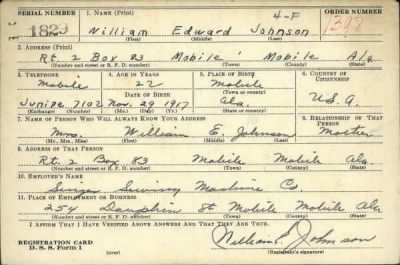 SERIAL NUMBER 1. NAME (Print) 4-F ORDER NUMBER
1829 William Edward Johnson 1398
(First) (Middle) (Last)
2. ADDRESS (Print)
Rt 2 Box 83 Mobile Mobile Ala
(Number and street or R. F. D. number) (Town) (County) (State)
3. TELEPHONE 4. AGE IN YEARS 5. PLACE OF BIRTH 6. COUNTRY OF CITIZENSHIP
Mobile 22 Mobile
DATE OF BIRTH (Town or county)
Junipe 7102 Nov. 29 1917 Ala. U.S.A.
(Exchange) (Number) (Mo.) (Day) (Yr.) (State or country)
7. NAME OF PERSON WHO WILL ALWAYS KNOW YOUR ADDRESS 8. RELATIONSHIP OF THAT PERSON
Mrs. William E. Johnson Mother
(Mr., Mrs., Miss) (First) (Middle) (Last)
9. ADDRESS OF THAT PERSON
Rt. 2 Box 83 Mobile Mobile Ala.
(Number and street or R. F. D. number) (Town) (County) (State)
10. EMPLOYER'S NAME
Singer Sewing Machine Co
11. PLACE OF EMPLOYMENT OR BUSINESS
254 Dauphin St Mobile Mobile Ala.
(Number and street or R. F. D. number) (Town) (County) (State)
I AFFIRM THAT I HAVE VERIFIED ABOVE ANSWERS AND THAT THEY ARE TRUE.
REGISTRATION CARD
D. S. S. Form 1 (over) William E Johnson
(Registrant's signature)